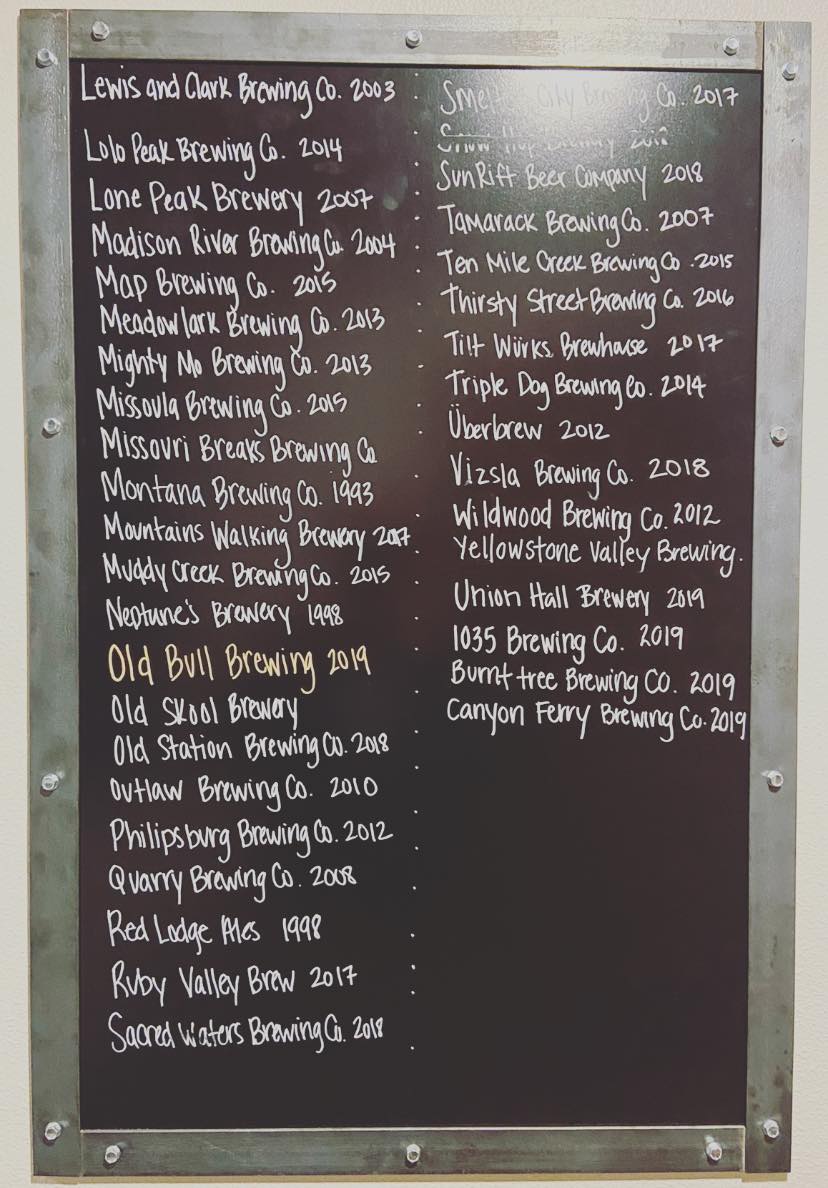 Lewis and Clark Brewing Co. 2003
Lolo Peak Brewing Co. 2014
Lone Peak Brewery 2007
Madison River Brewing Co. 2004
Map Brewing Co. 2015
Meadowlark Brewing Co. 2013
Mighty Mo Brewing Co. 2013
Missoula Brewing Co. 2015
Missouri Breaks Brewing Co
Montana Brewing Co. 1993
Mountains Walking Brewery 2017
Muddy Creek Brewing Co. 2015
Neptune's Brewery 1998
Old Bull Brewing 2019
Old Skool Brewery
Old Station Brewing Co. 2018
Outlaw Brewing Co. 2010
Philipsburg Brewing Co. 2012
Quarry Brewing Co. 2008
Red Lodge Ales 1998
Ruby Valley Brew 2017
Sacred Waters Brewing Co. 2018
City Brewing Co. 2017
Brewery
SunRift Beer Company 2018
Tamarack Brewing Co. 2007
Ten Mile Creek Brewing Co. 2015
Thirsty Street Brewing Co. 2016
Tilt Würks Brewhouse 2017
Triple Dog Brewing Co. 2014
Überbrew 2012
Vizsla Brewing Co. 2018
Wildwood Brewing Co. 2012
Yellowstone Valley Brewing.
Union Hall Brewery 2019
1035 Brewing Co. 2019
Burnt tree Brewing CO. 2019
Canyon Ferry Brewing Co. 2019